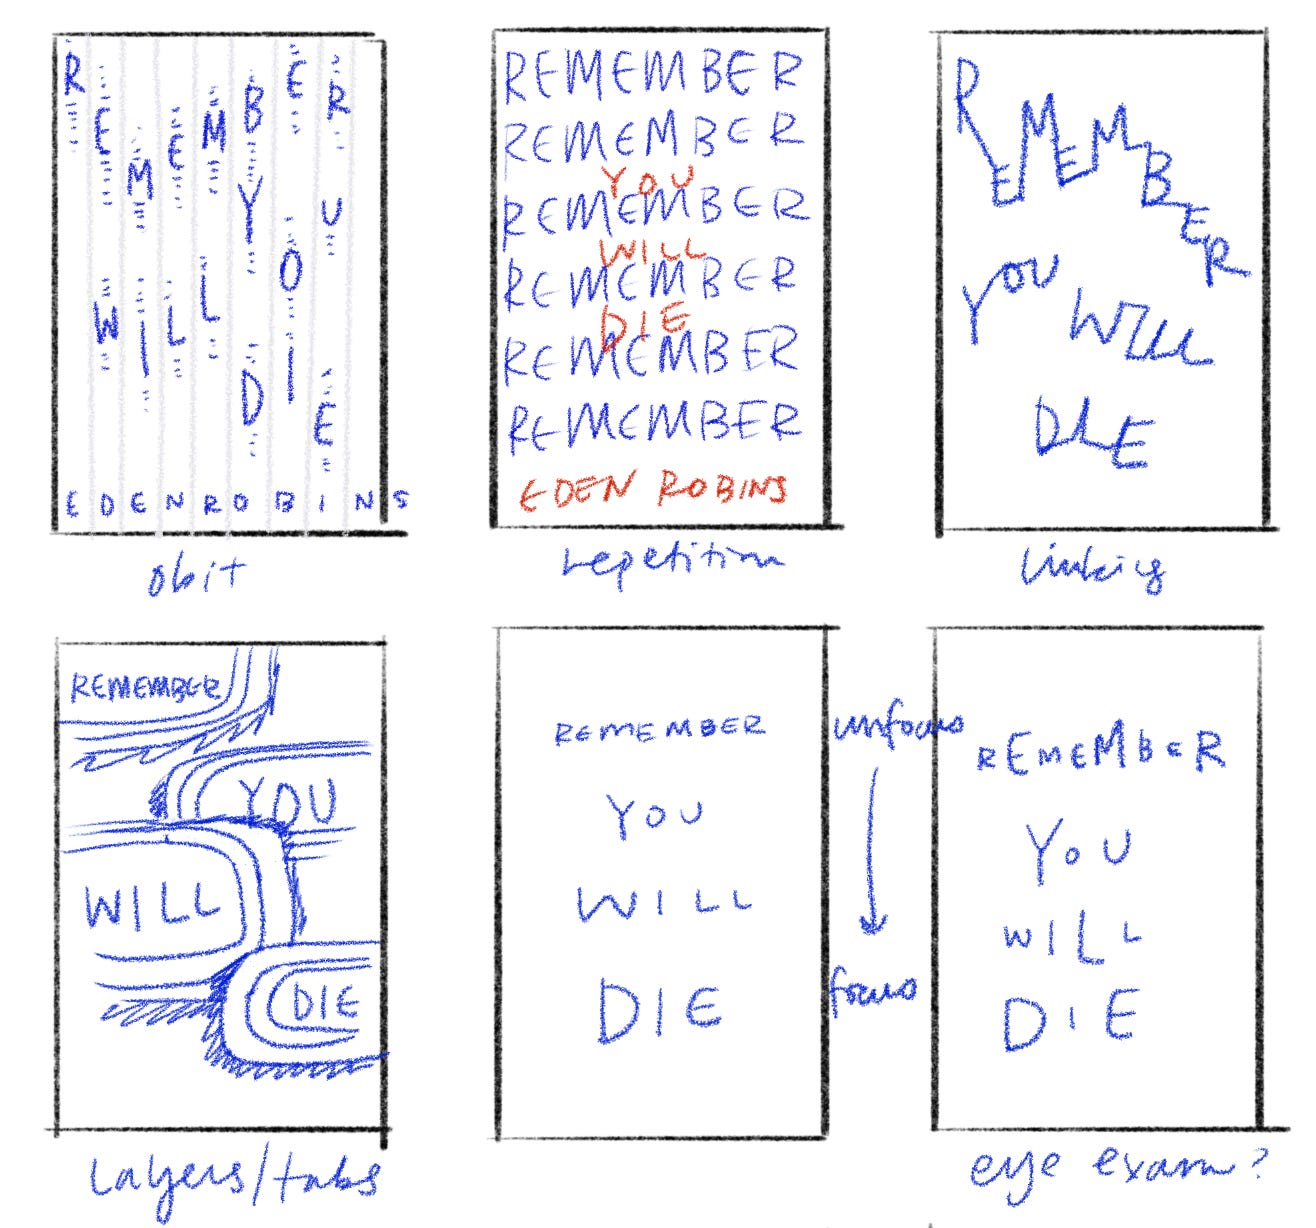 REMEMBER
YOU
WILL
DIE
EDEN ROBINS
obit
REMEMBER
REMEMBER
YOU
REMEMBER
WILL
REMEMBER
DIE
REMEMBER
REMEMBER
EDEN ROBINS
repetition
REMEMBER
YOU WILL
DIE
linking
REMEMBER
YOU
WILL
DIE
Layers/tabs
REMEMBER
YOU
WILL
DIE
unfocus
focus
REMEMBER
YOU
WILL
DIE
eye exam?